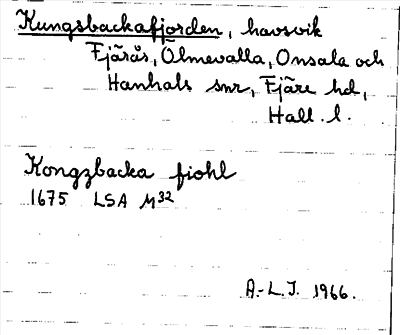 Kungsbackafjorden, havsvik
Fjärås, Ölmevalla, Onsala och
Hanhals snr, Fjäre hd,
Hall. l.
Kongzbacka fiohl
1675 LSA M32
A.-L.J. 1966.